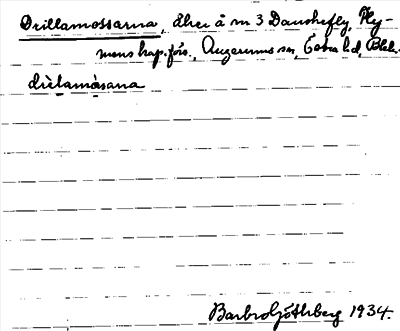 Drillamossarna, dher å m 3 Danskefly, Fly-
mens kap.förs., Augerums sn, Östra hd, Blek.
drìlamåsana
Barbro Göthberg 1934.